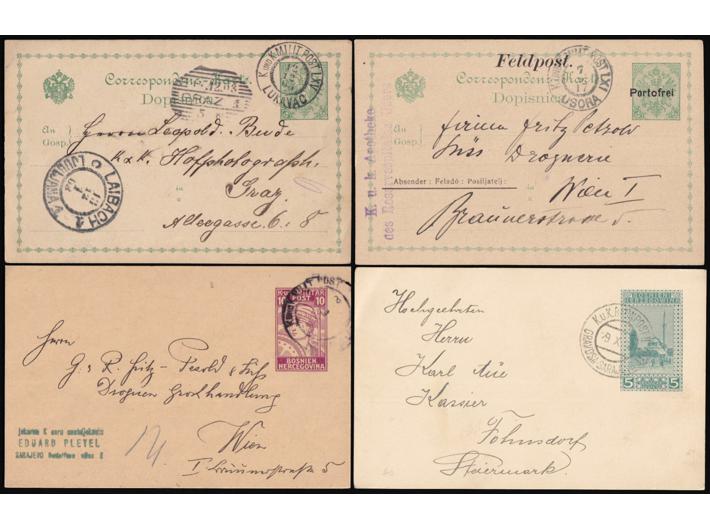 Correspondenz-Karte
Dopisnica
An
Gosp.
K UND K MILIT. POST LXV
LUKAVAC
GRAZ
LAIBACH
LJUBLJANA
Herrn Leopold Bude
k.k. Hofphotograph
Graz
Alleegasse 6. 8
Feldpost.
Correspondenz-Karte
Dopisnica
Portofrei
POST LXI
USORA
7
17
K. u. k. Apotheke
An
Gosp.
Firma Fritz Petzold
Süss Drogerie
Absender : Feladó : Posiljatelj :
Wien I
Bräunerstrasse 5.
K.u.K. MILITÄR
10 POST 10
BOSNIEN
HERCEGOVINA
MILIT. POST
Herrn
G. & R. Fritz-Pezold & Süß
Drogen Großhandlung
Wien
I Bräunerstraße 5
EDUARD PLEYEL
SARAJEVO
BOSNIEN
HERCEGOVINA
5 5
Hochgeehrten
Herrn
Karl Aue
Kassier
Fohnsdorf
Steiermark.